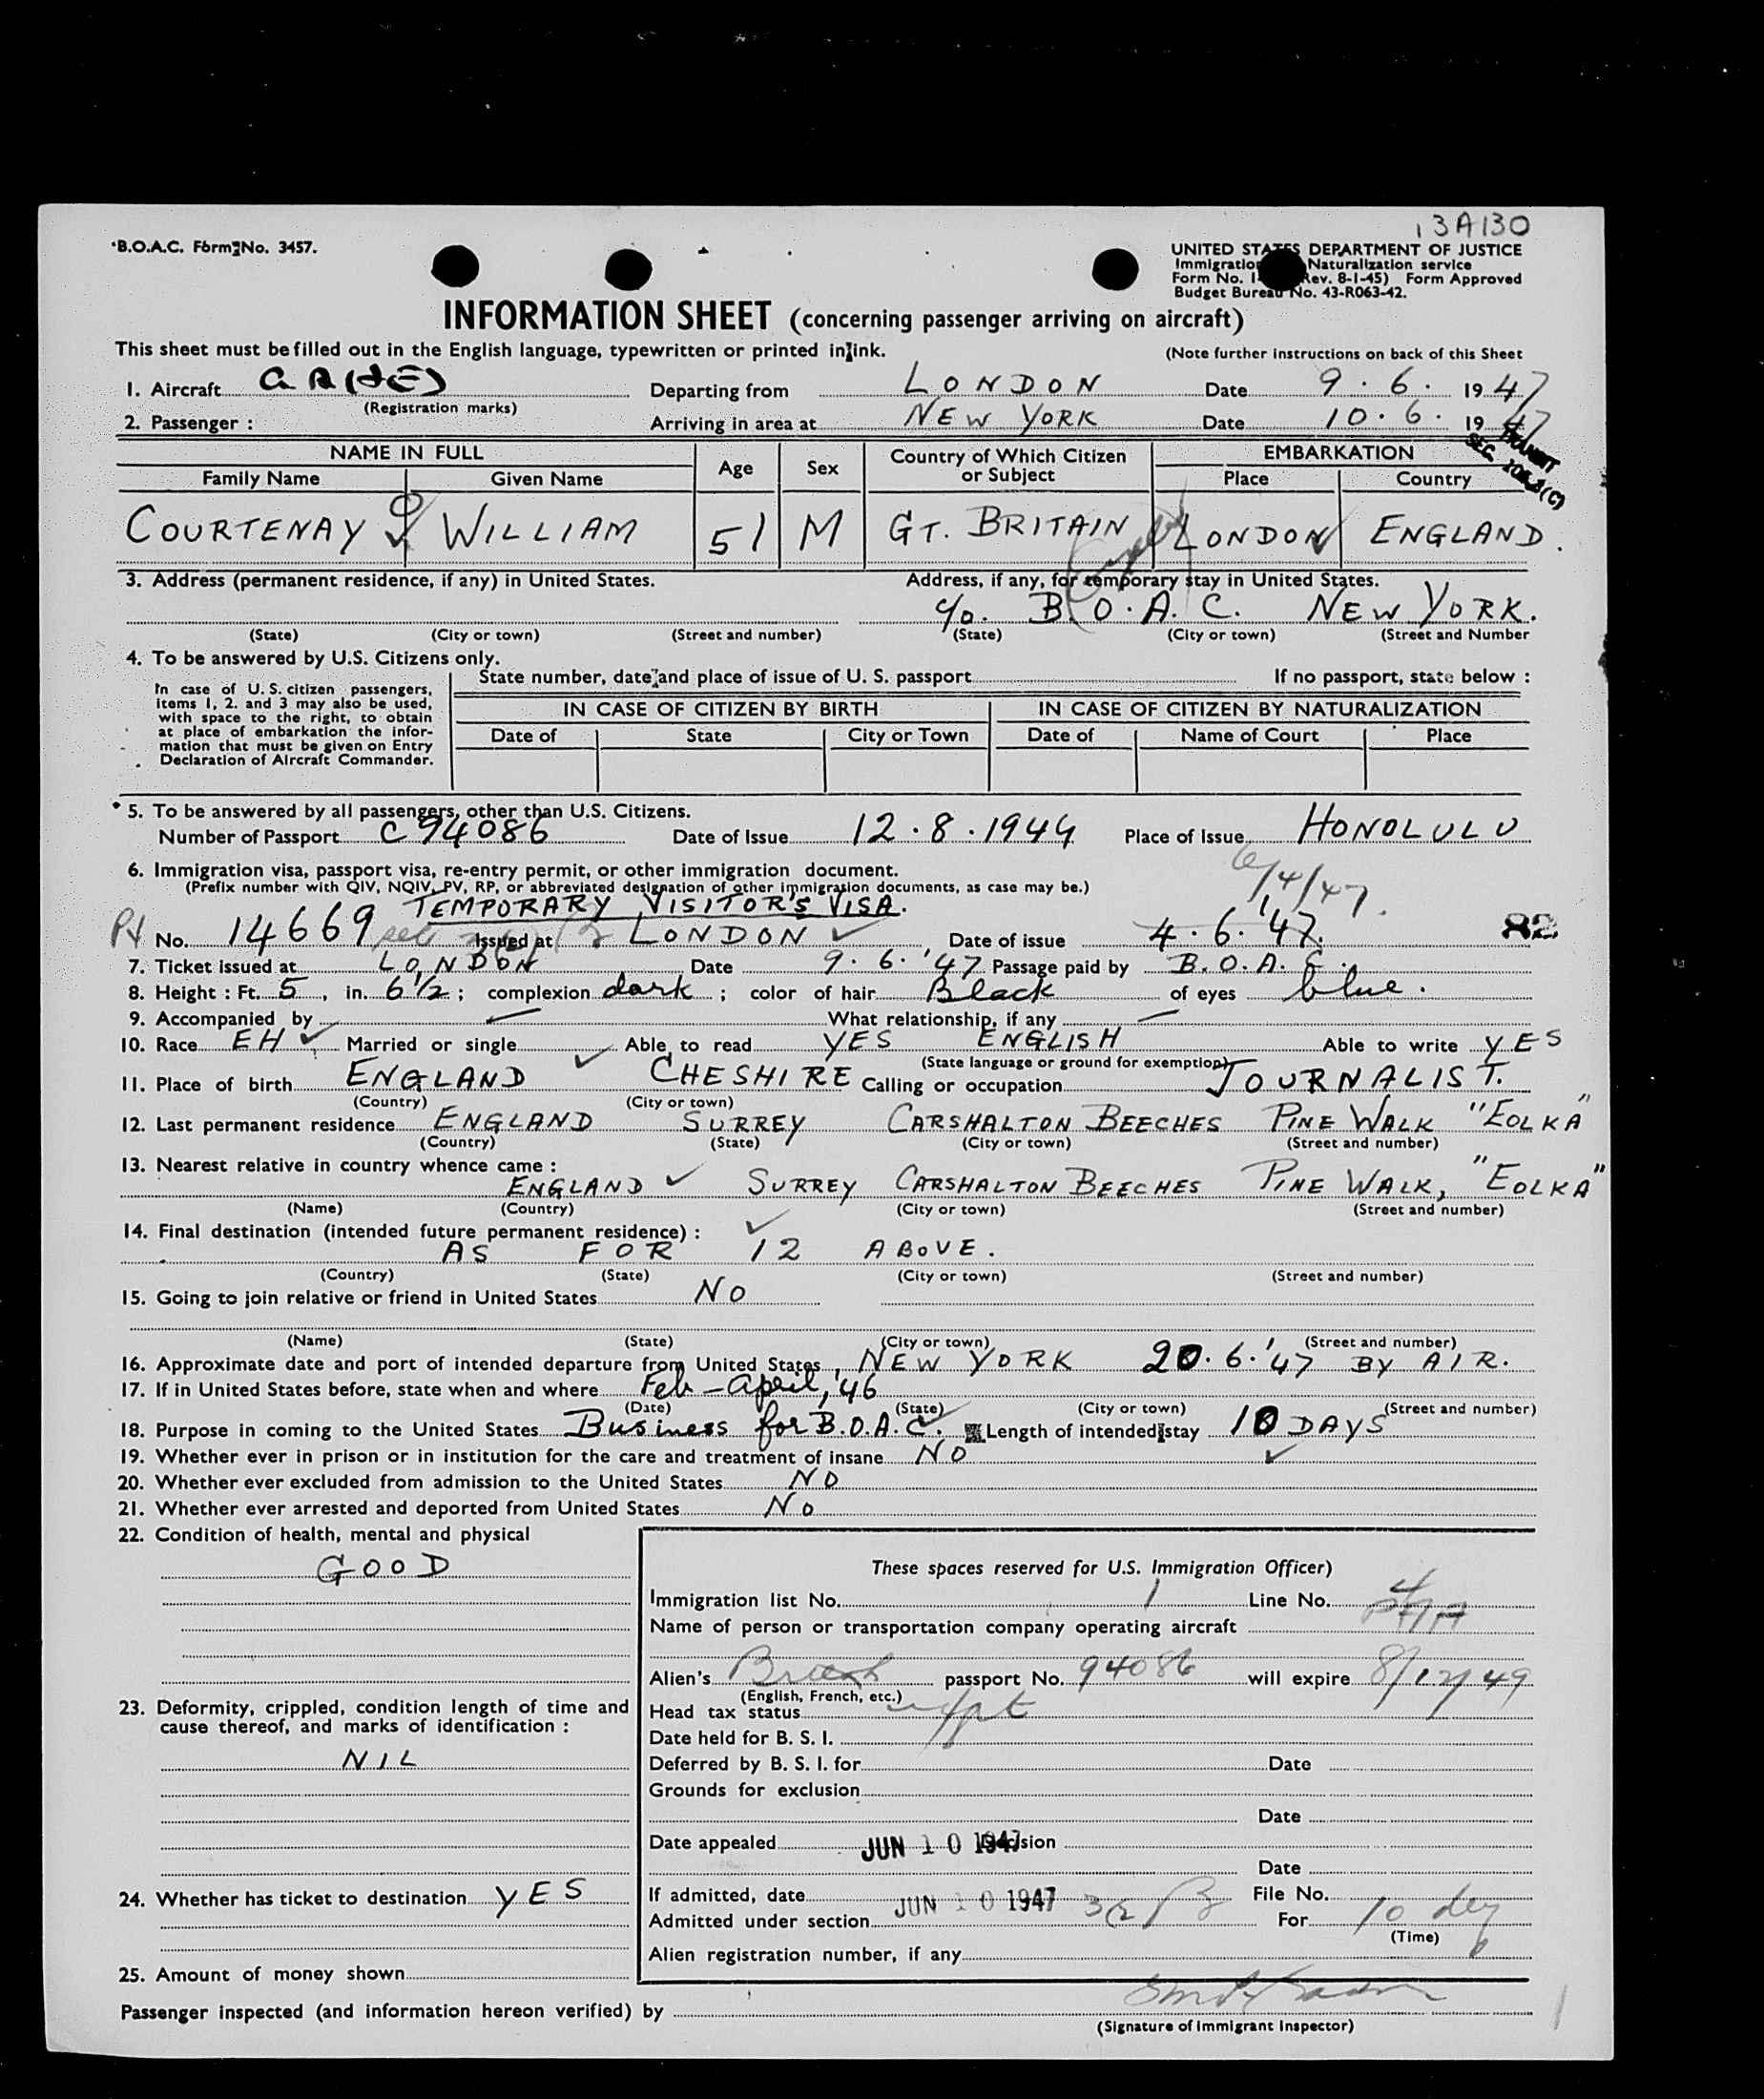 13A130
B.O.A.C. Form No. 3457.
UNITED STATES DEPARTMENT OF JUSTICE
Immigration Naturalization service
Form No. I- Rev. 8-1-45) Form Approved
Budget Bureau No. 43-R063-42.
INFORMATION SHEET (concerning passenger arriving on aircraft)
This sheet must be filled out in the English language, typewritten or printed in ink. (Note further instructions on back of this Sheet
1. Aircraft Departing from LONDON Date 9.6. 1947
(Registration marks)
2. Passenger : Arriving in area at NEW YORK Date 10.6. 1947
TRANSIT
SEC.
NAME IN FULL Age Sex Country of Which Citizen or Subject EMBARKATION
Family Name Given Name Place Country
COURTENAY WILLIAM 51 M GT. BRITAIN LONDON ENGLAND.
3. Address (permanent residence, if any) in United States. Address, if any, for temporary stay in United States.
c/o. B.O.A.C. NEW YORK.
(State) (City or town) (Street and number) (State) (City or town) (Street and Number
4. To be answered by U.S. Citizens only.
In case of U. S. citizen passengers, items 1, 2. and 3 may also be used, with space to the right, to obtain at place of embarkation the information that must be given on Entry Declaration of Aircraft Commander.
State number, date and place of issue of U. S. passport If no passport, state below :
IN CASE OF CITIZEN BY BIRTH IN CASE OF CITIZEN BY NATURALIZATION
Date of State City or Town Date of Name of Court Place
5. To be answered by all passengers, other than U.S. Citizens.
Number of Passport C 94086 Date of Issue 12.8.1944 Place of Issue HONOLULU
6. Immigration visa, passport visa, re-entry permit, or other immigration document.
(Prefix number with QIV, NQIV, PV, RP, or abbreviated designation of other immigration documents, as case may be.)
6/4/47.
TEMPORARY VISITOR'S VISA.
No. 14669 Issued at LONDON Date of issue 4.6.'47. 82
7. Ticket issued at LONDON Date 9.6.'47 Passage paid by B.O.A.C.
8. Height : Ft. 5, in. 6 1/2 ; complexion dark ; color of hair Black of eyes blue.
9. Accompanied by — What relationship, if any —
10. Race EH Married or single Able to read YES ENGLISH Able to write YES
(State language or ground for exemption)
11. Place of birth ENGLAND CHESHIRE Calling or occupation JOURNALIST.
(Country) (City or town)
12. Last permanent residence ENGLAND SURREY CARSHALTON BEECHES PINE WALK "EOLKA"
(Country) (State) (City or town) (Street and number)
13. Nearest relative in country whence came :
ENGLAND SURREY CARSHALTON BEECHES PINE WALK, "EOLKA"
(Name) (Country) (City or town) (Street and number)
14. Final destination (intended future permanent residence) :
AS FOR 12 ABOVE.
(Country) (State) (City or town) (Street and number)
15. Going to join relative or friend in United States NO
(Name) (State) (City or town) (Street and number)
16. Approximate date and port of intended departure from United States, NEW YORK 20.6.'47 BY AIR.
17. If in United States before, state when and where Feb - April, '46
(Date) (State) (City or town) (Street and number)
18. Purpose in coming to the United States Business for B.O.A.C. Length of intended stay 10 DAYS
19. Whether ever in prison or in institution for the care and treatment of insane NO
20. Whether ever excluded from admission to the United States NO
21. Whether ever arrested and deported from United States NO
22. Condition of health, mental and physical
GOOD
These spaces reserved for U.S. Immigration Officer)
Immigration list No. 1 Line No. 4
Name of person or transportation company operating aircraft
Alien's British passport No. 94086 will expire 8/12/49
(English, French, etc.)
23. Deformity, crippled, condition length of time and cause thereof, and marks of identification :
NIL
Head tax status
Date held for B. S. I.
Deferred by B. S. I. for Date
Grounds for exclusion
Date
Date appealed JUN 10 1947 Decision
Date
24. Whether has ticket to destination YES
If admitted, date JUN 10 1947 File No.
Admitted under section For 10
(Time)
Alien registration number, if any
25. Amount of money shown
Passenger inspected (and information hereon verified) by
(Signature of Immigrant Inspector)